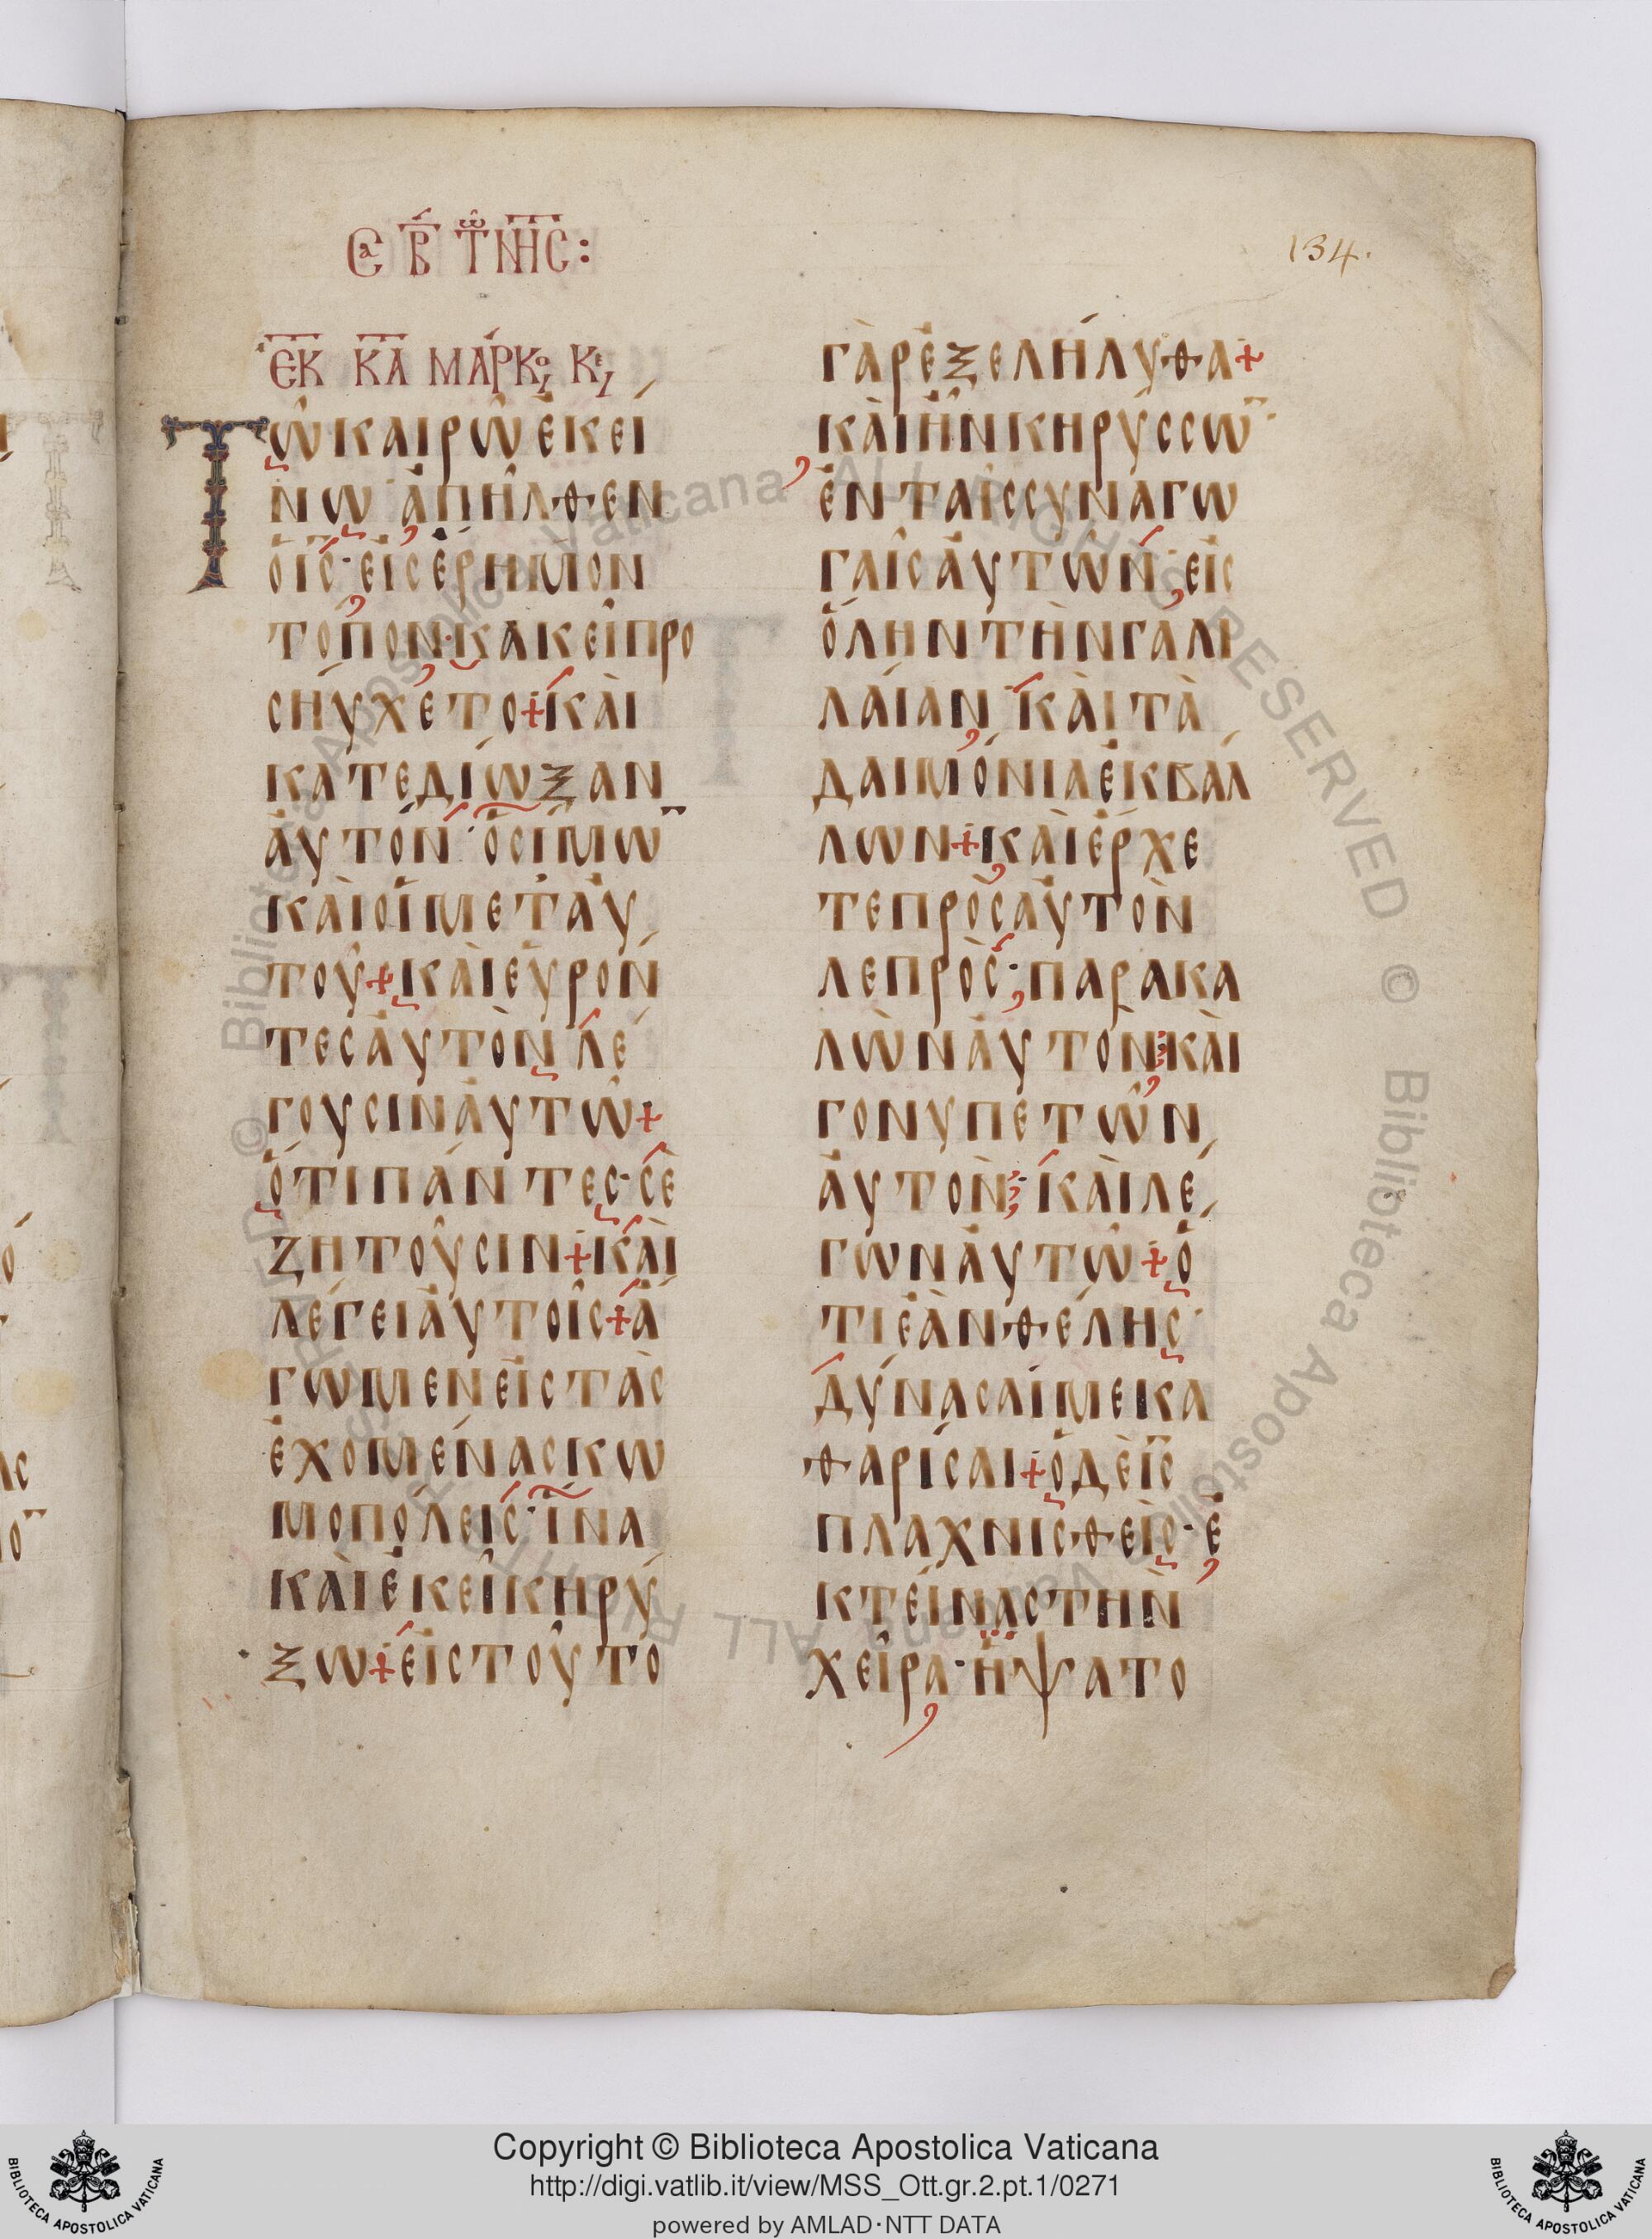 Ϲα Β ΤΩΝ ΝΗϹ:
134.
ἘΚ ΚΑ ΜΆΡΚο Κε
Τῶ ΚΑΙΡῶ ἘΚΕΊ
ΝΩ· ἈΠΗ͂ΛΘΕΝ
ὉΙϹ· ἘΙϹ ἜΡΗΜΟΝ
ΤΌΠΟΝ· ΚΑΚΕΙ͂ ΠΡΟ
ϹΗΎΧΕΤΟ + ΚΑῚ
ΚΑΤΕΔΊΩΞΑΝ
ἈΥΤΌΝ· Ὁ ϹΊΜΩ
ΚΑῚ ὉΙ ΜΕΤ᾿ ἈΥ
ΤΟΥ͂ + ΚΑῚ ΕὙΡΌΝ
ΤΕϹ ἈΥΤῸΝ ΛΈ
ΓΟΥϹΙΝ ἈΥΤῶ +
ὍΤΙ ΠΆΝΤΕϹ· ϹῈ
ΖΗΤΟΥ͂ϹΙΝ + ΚΑῚ
ΛΈΓΕΙ ἈΥΤΟΙ͂Ϲ + Ἄ
ΓΩΜΕΝ ἘΙϹ ΤᾺϹ
ἘΧΟΜΈΝΑϹ ΚΩ
ΜΟΠΌΛΕΙϹ· ἽΝΑ
ΚΑῚ ἘΚΕΙ͂ ΚΗΡΎ
ΞΩ + ἘΙϹ ΤΟΥ͂ΤΟ
ΓᾺΡ ἘΞΕΛΉΛΥΘΑ +
ΚΑῚ ἮΝ ΚΗΡΎϹϹΩ
ἘΝ ΤΑΙ͂Ϲ ϹΥΝΑΓΩ
ΓΑΙ͂Ϲ ἈΥΤῶΝ· ἘΙϹ
ὍΛΗΝ ΤῊΝ ΓΑΛΙ
ΛΑΊΑΝ· ΚΑῚ ΤᾺ
ΔΑΙΜΌΝΙΑ ἘΚΒΆΛ
ΛΩΝ + ΚΑῚ ἜΡΧΕ
ΤΕ ΠΡῸϹ ἈΥΤῸΝ
ΛΕΠΡῸϹ· ΠΑΡΑΚΑ
ΛῺΝ ἈΥΤΟΝ· ΚΑῚ
ΓΟΝΥΠΕΤῶΝ
ἈΥΤῸΝ· ΚΑῚ ΛΈ
ΓΩΝ ἈΥΤῶ + Ὅ
ΤΙ ἘᾺΝ ΘΈΛΗϹ·
ΔΎΝΑϹΑΊ ΜΕ ΚΑ
ΘΑΡΊϹΑΙ + Ὁ ΔῈ ΙϹ
ΠΛΑΧΝΙϹΘΕῚϹ· Ἐ
ΚΤΕΊΝΑϹ ΤῊΝ
ΧΕΙ͂ΡΑ· ἭΨΑΤΟ
Copyright © Biblioteca Apostolica Vaticana
http://digi.vatlib.it/view/MSS_Ott.gr.2.pt.1/0271
powered by AMLAD·NTT DATA
BIBLIOTECA APOSTOLICA VATICANA
BIBLIOTECA APOSTOLICA VATICANA